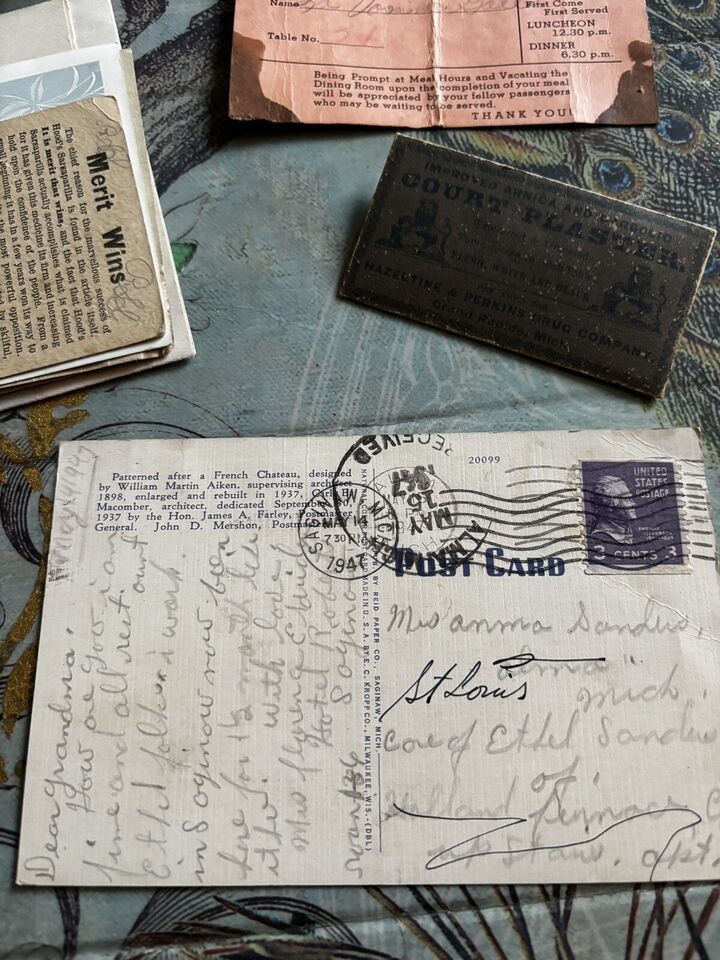 Name
First Come
First Served
LUNCHEON
12.30 p.m.
Table No.
DINNER
6.30 p.m.
Being Prompt at Meal Hours and Vacating the
Dining Room upon the completion of your meal
will be appreciated by your fellow passengers
who may be waiting to be served.
THANK YOU!
Merit Wins
The chief reason for the marvellous success of
Hood's Sarsaparilla is found in the article itself.
It is merit that wins, and the fact that Hood's
Sarsaparilla actually accomplishes what is claimed
for it has given this medicine its firm and increasing
hold upon the confidence of the people. From a
small beginning it has in a few years won its way to
the most powerful opposition.
by skilful,
IMPROVED ARNICA AND CARBOLIC
COURT PLASTER.
FLESH, WHITE AND BLACK
HAZELTINE & PERKINS DRUG COMPANY,
Grand Rapids, Mich.
Patterned after a French Chateau, designed
by William Martin Aiken, supervising architect
1898, enlarged and rebuilt in 1937, Carl H.
Macomber, architect, dedicated September 30,
1937 by the Hon. James A. Farley, Postmaster
General. John D. Mershon,
20099
RECEIVED
MAY
1947
SAGINAW
MAY 14
7 30 PM
1947
MICH
UNITED
STATES
POSTAGE
THOMAS
JEFFERSON
3 CENTS 3
POST CARD
BY REID PAPER CO., SAGINAW, MICH.
MADE IN U.S.A. BY E. C. KROPP CO., MILWAUKEE, WIS.-(DBL)
Dear Grandma.
How are you I am
fine and all rest out
Ethel folks and work
in Saginaw now been
here for 1½ month
with love
Miss
Hotel
Saginaw
room 136
Miss Anna Sanders
Alma
St Louis Mich.
care of Ethel Sanders
of,
Furnace
up stairs. apt